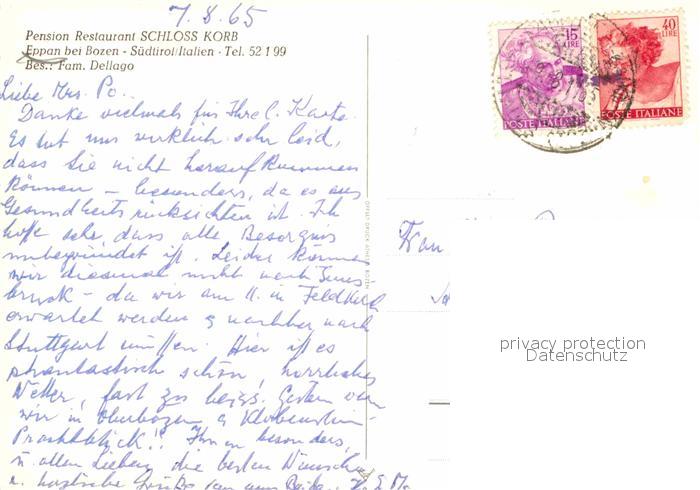 7.8.65
Pension Restaurant SCHLOSS KORB
Eppan bei Bozen - Südtirol/Italien - Tel. 52 1 99
Bes.: Fam. Dellago
Liebe Mrs. Po..
Danke vielmals für Ihre l. Karte.
Es tut uns wirklich sehr leid,
dass Sie nicht heraufkommen
können – besonders, da es aus
Gesundheitsrücksichten ist. Ich
hoffe sehr, dass alle Besorgnis
unbegründet ist. Leider können
wir diesmal nicht nach Inns
bruck – da wir am 11. in Feldkirch
erwartet werden & nachher nach
Stuttgart müssen. Hier ist es
phantastisch schön, herrliches
Wetter, fast zu heiss. Gestern waren
wir in Oberbozen & Klobenstein –
Prachtblick!! Ihnen besonders,
u. allen Lieben die besten Wünsche
u. herzliche Grüsse von uns Beiden
Frau
15
LIRE
POSTE ITALIANE
40
LIRE
POSTE ITALIANE
privacy protection
Datenschutz